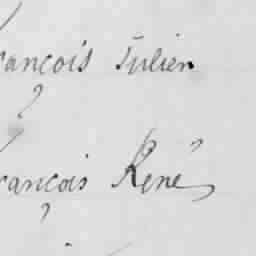 rançois Julien
rançois René